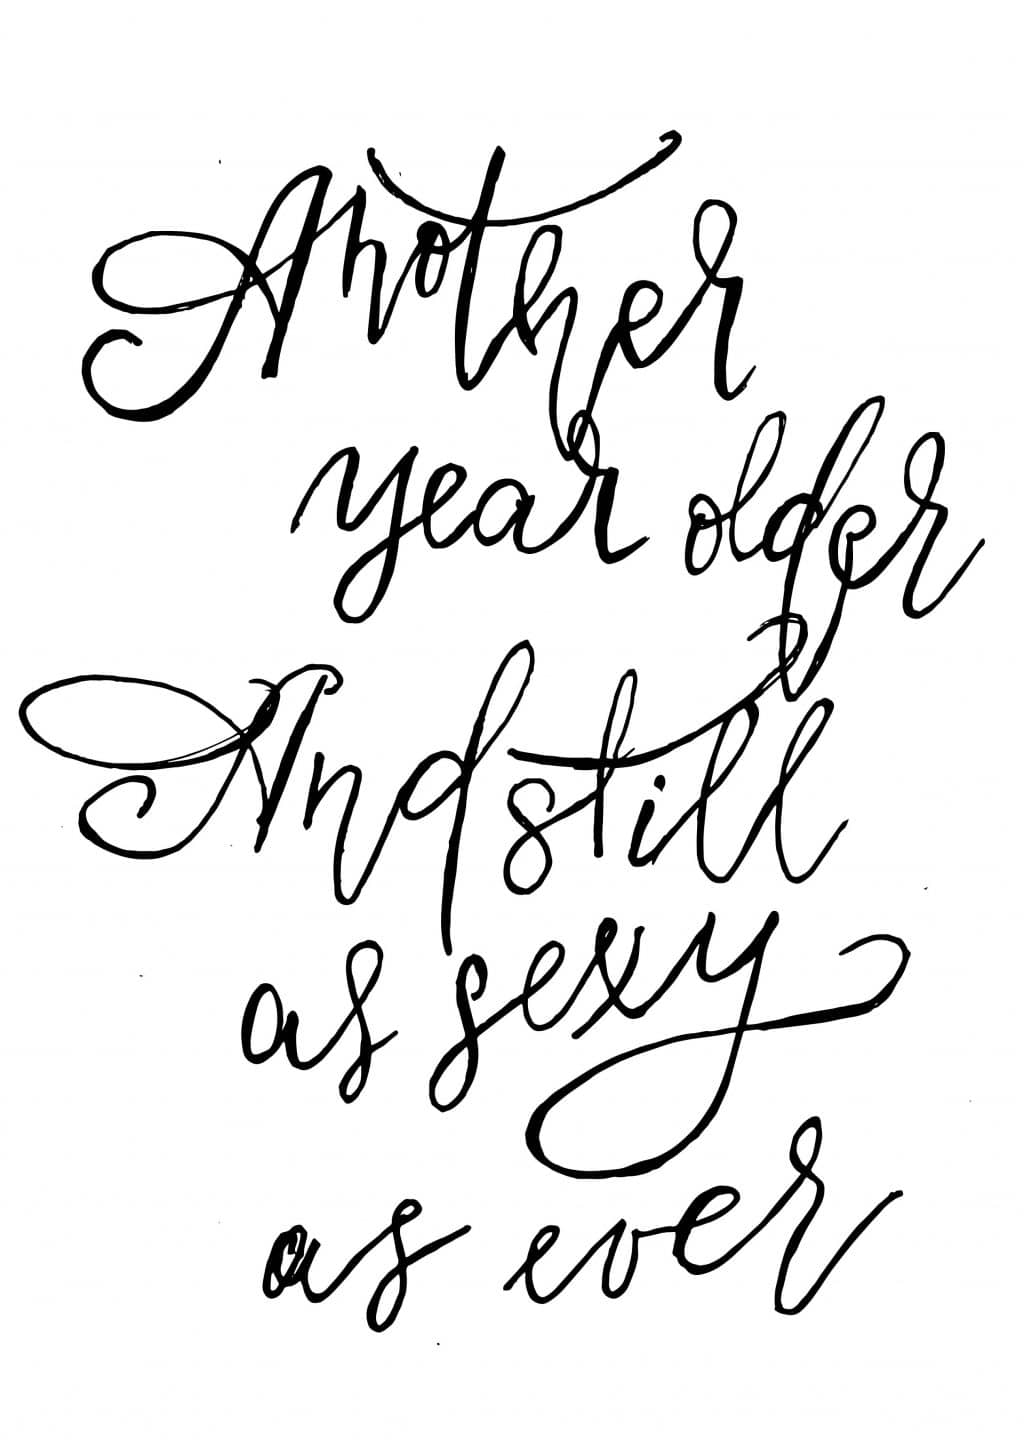 Another
year older
And still
as sexy
as ever